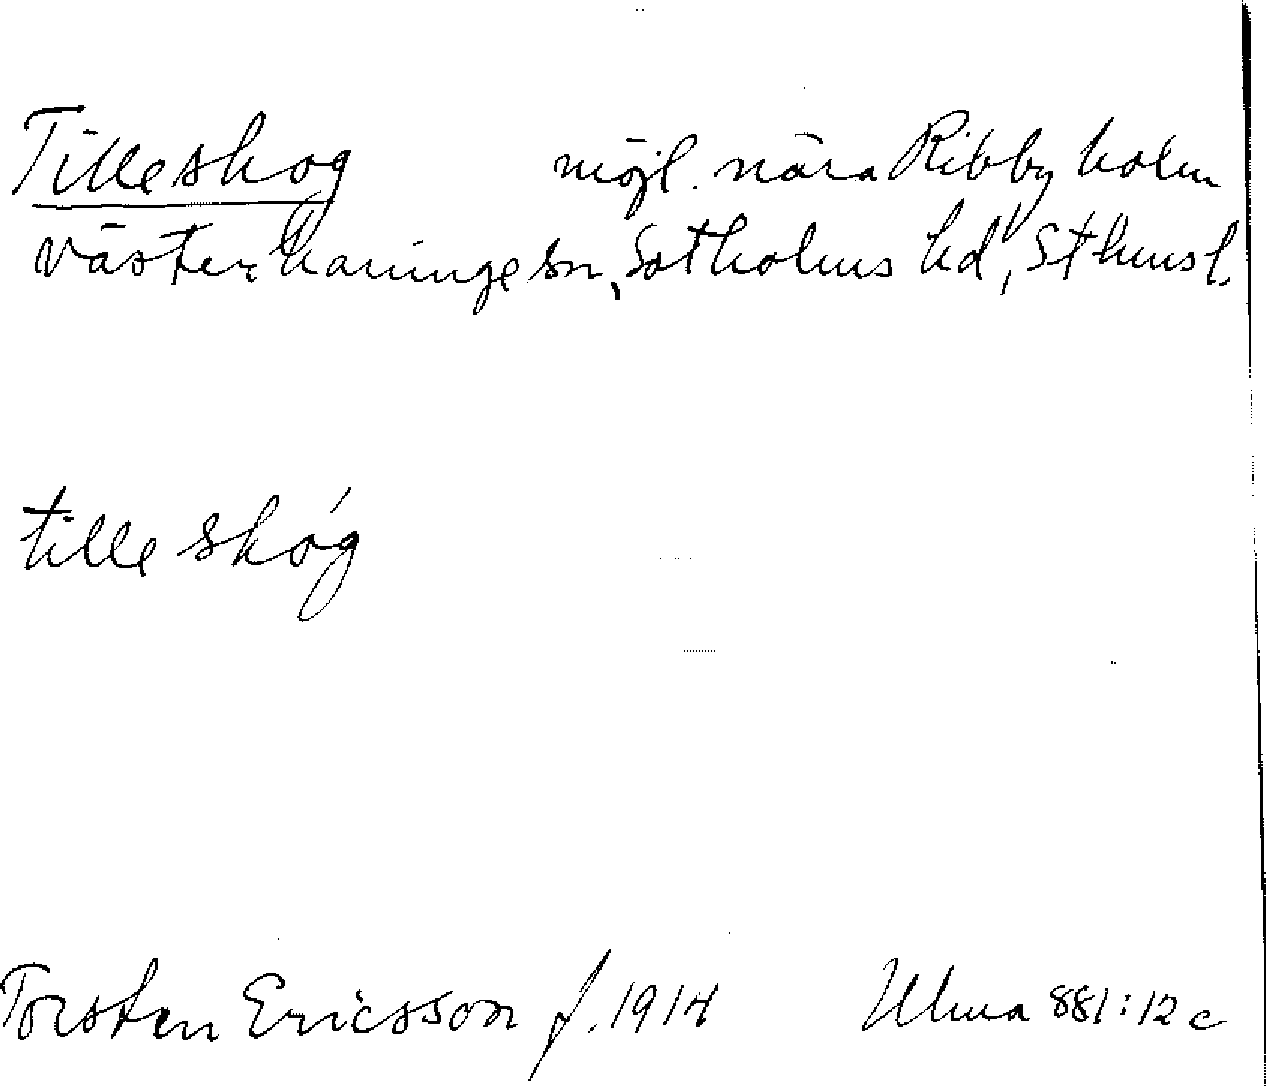 Tilleskog möjl. nära Ribby holm
Västerhaninge sn, Sotholms hd, Sthms l.
tille skóg
Torsten Ericsson f. 1914 Ulma 881:12 c